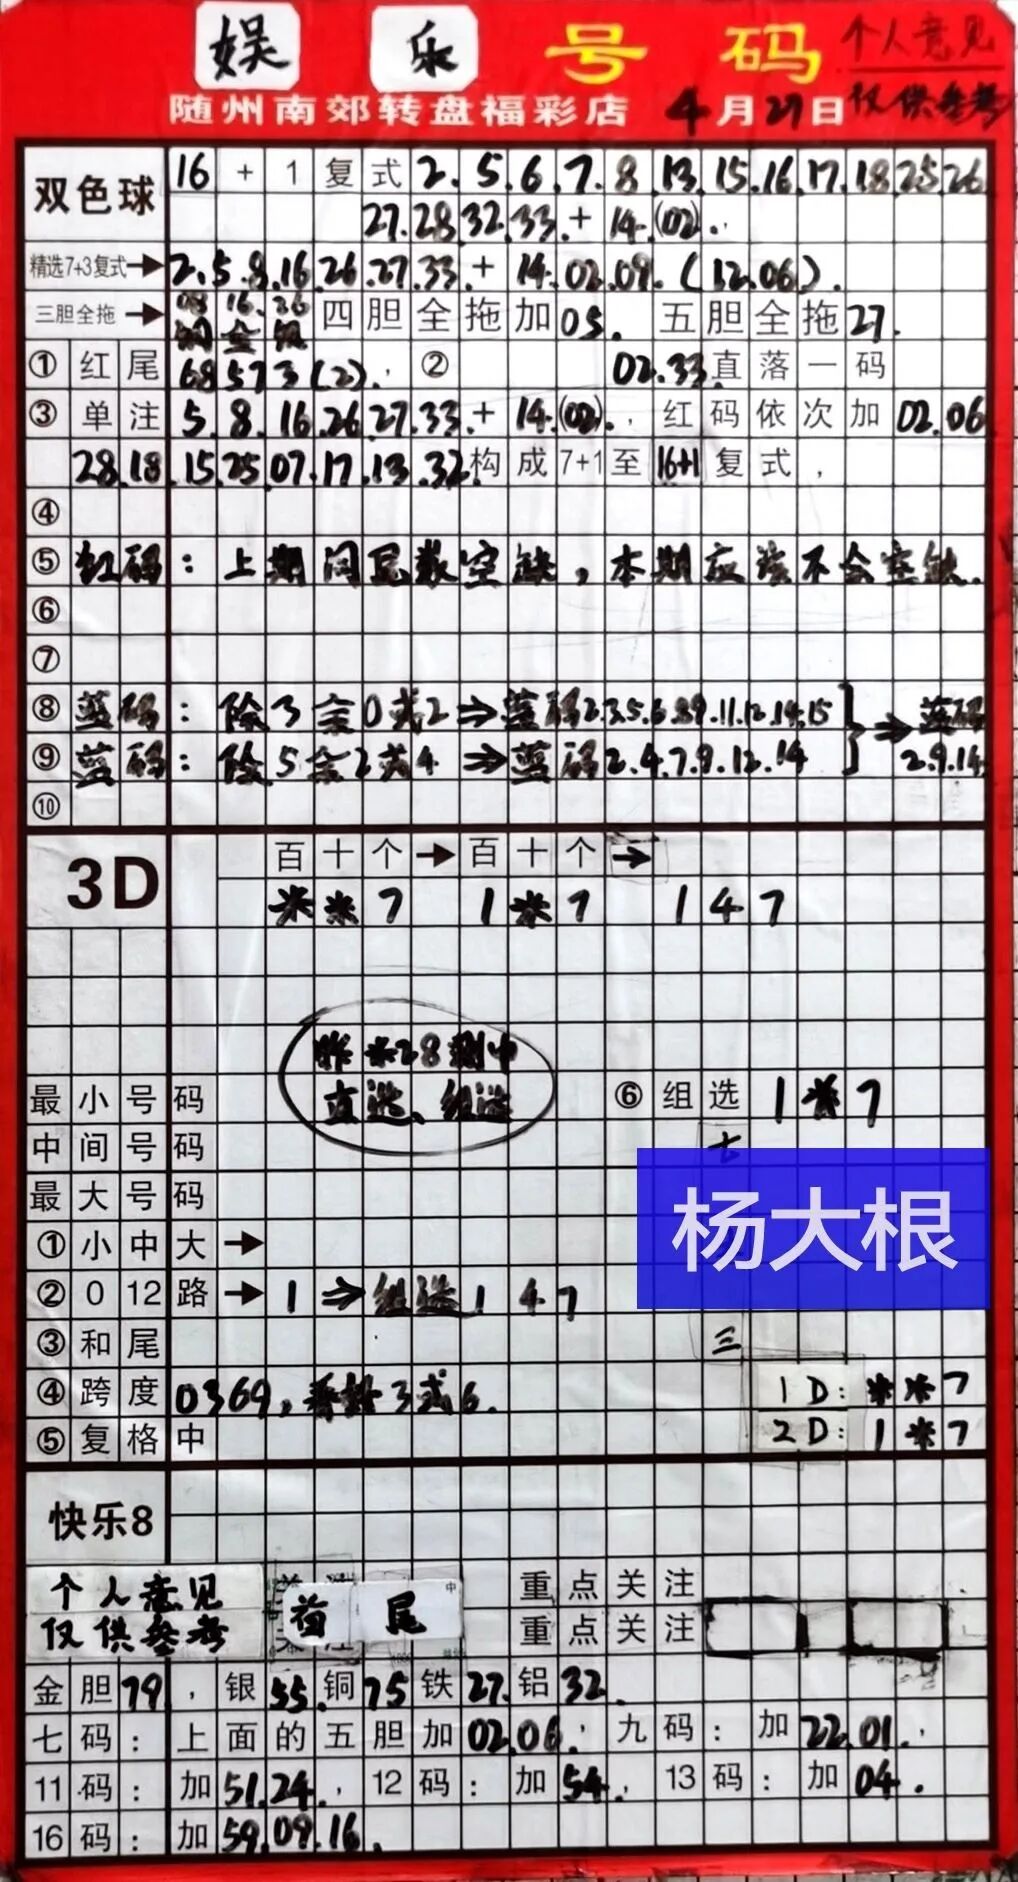 娱乐号码 个人意见
随州南郊转盘福彩店 4月27日 仅供参考
双色球 16+1复式 2.5.6.7.8.13.15.16.17.18.25.26
27.28.32.33.+14.(02).
精选7+3复式→ 2.5.8.16.26.27.33.+14.02.09.(12.06).
三胆全拖→ 08 16.26 四胆全拖加05. 五胆全拖27.
①红尾 68573(2). ② 02.33.直落一码
③单注 5.8.16.26.27.33.+14.(02). 红码依次加02.06
28.18.15.25.07.17.13.32.构成7+1至16+1复式,
④
⑤红码:上期同尾数空缺,本期应该不会空缺.
⑥
⑦
⑧蓝码:除3余0或2⇒蓝码2.3.5.6.8.9.11.12.14.15 ⇒蓝码
⑨蓝码:除5余2或4⇒蓝码2.4.7.9.12.14 2.9.14
⑩
3D 百十个→百十个→
**7 1*7 147
昨*28测中
直选、组选
最小号码 ⑥组选 1*7
中间号码 七
最大号码
杨大根
①小中大→
②012路→1⇒组选147
③和尾 三
④跨度 0369,看好3或6. 1D:**7
⑤复格中 2D:1*7
快乐8
个人意见 重点关注
仅供参考 首尾 重点关注
金胆79,银55.铜75铁27.铝32.
七码:上面的五胆加02.06,九码:加22.01,
11码:加51.24.,12码:加54,13码:加04.
16码:加59.09.16.